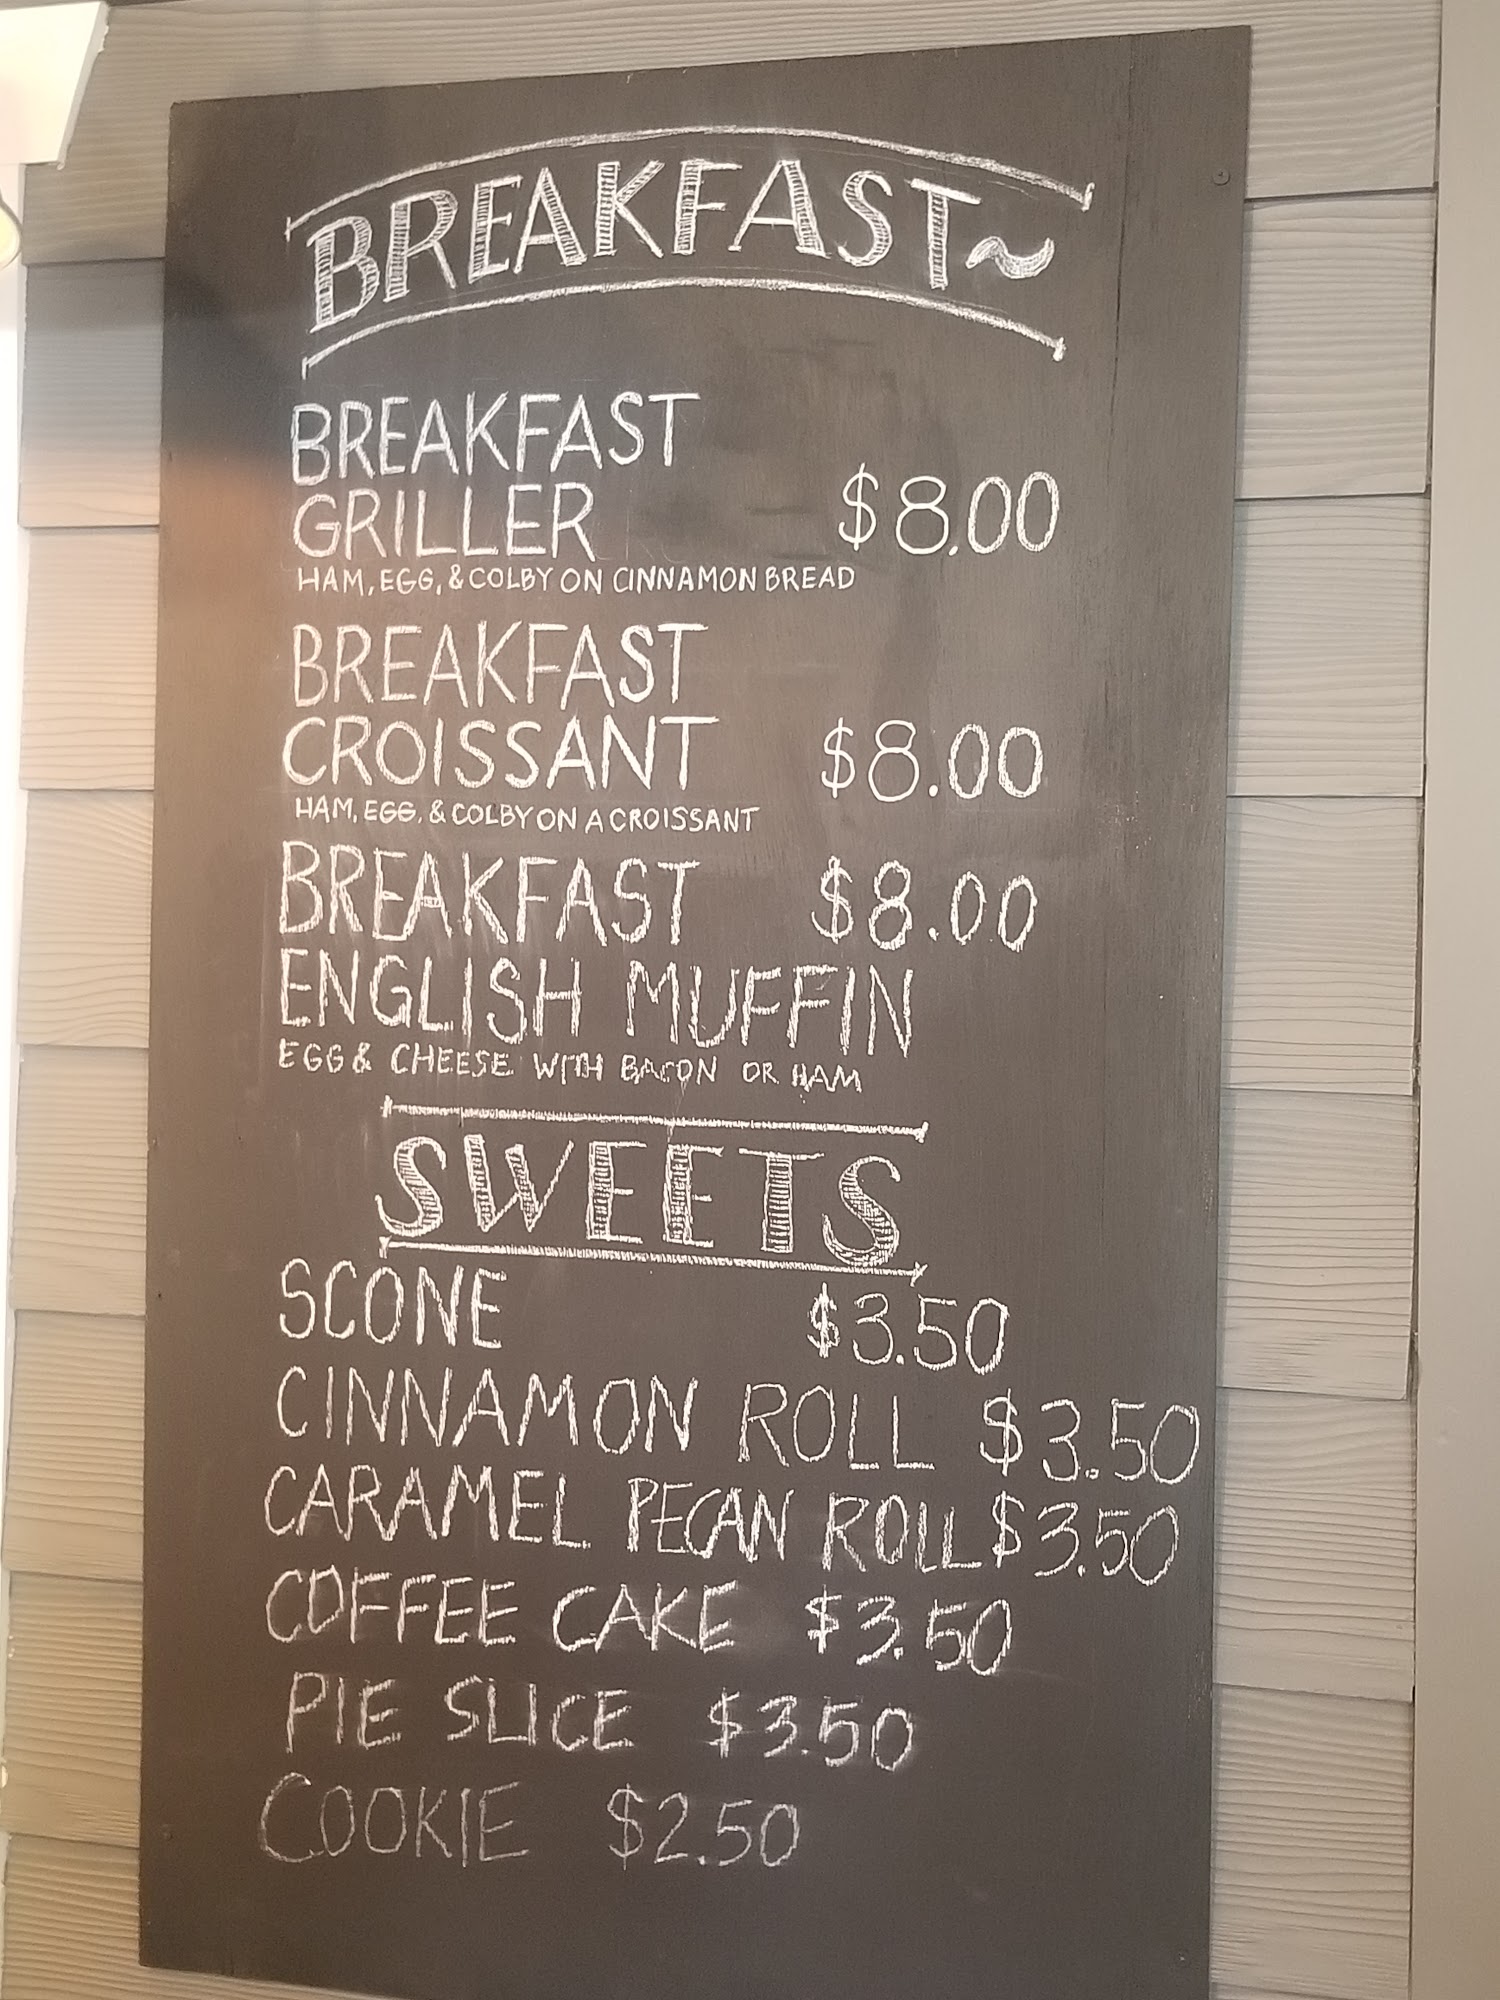 BREAKFAST~
BREAKFAST
GRILLER $8.00
HAM, EGG, & COLBY ON CINNAMON BREAD
BREAKFAST
CROISSANT $8.00
HAM, EGG, & COLBY ON A CROISSANT
BREAKFAST $8.00
ENGLISH MUFFIN
EGG & CHEESE WITH BACON OR HAM
SWEETS
SCONE $3.50
CINNAMON ROLL $3.50
CARAMEL PECAN ROLL $3.50
COFFEE CAKE $3.50
PIE SLICE $3.50
COOKIE $2.50